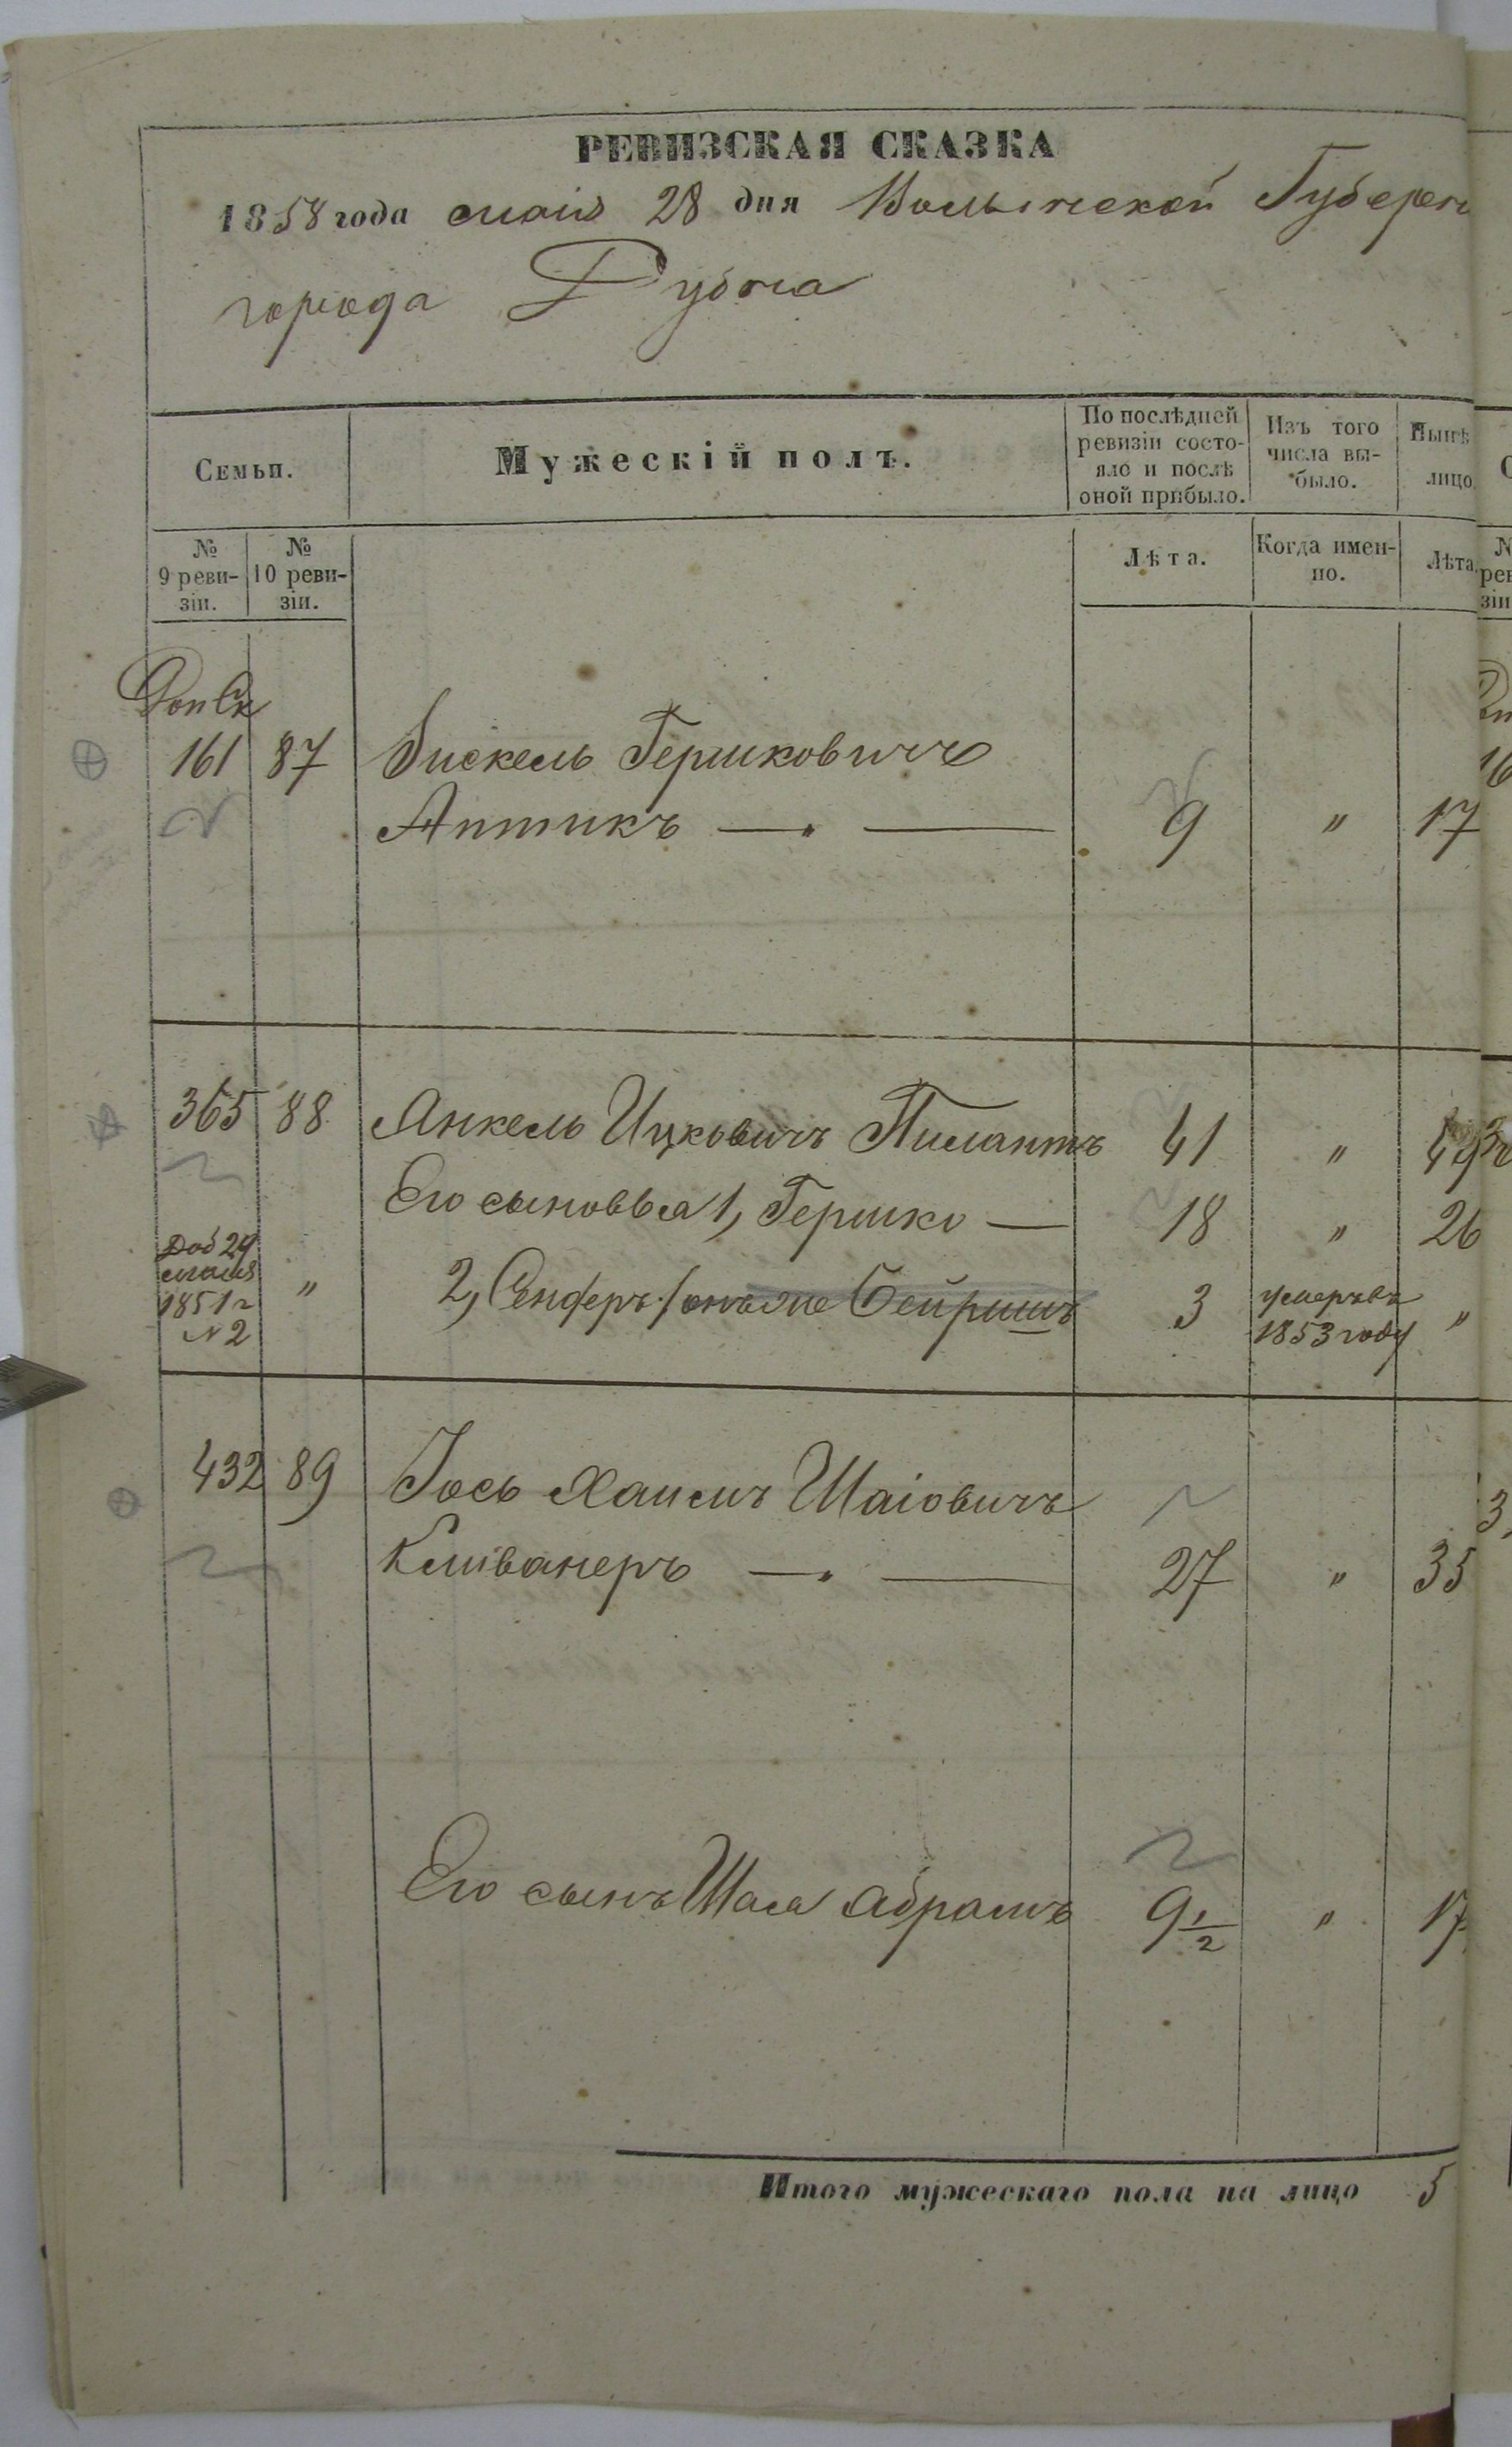 РЕВИЗСКАЯ СКАЗКА
1858 года маія 28 дня Волынской Губерн
города Дубна
Семьи.
Мужескій полъ.
По послѣдней
ревизіи состо-
яло и послѣ
оной прибыло.
Изъ того
числа вы-
было.
Нынѣ
лицо
№
9 реви-
зіи.
№
10 реви-
зіи.
Лѣта.
Когда имен-
но.
Лѣта
Доп Ск
161 87 Гершковичъ
Аптикъ — 9 " 17
365 88 Янкель Ицковичъ 41 " 49
Его сыновья 1, Гершко — 18 " 26
Доб 29
маія
1851 г
N 2
" 2, Сендеръ / онъ же Бейришъ 3 умеръ въ
1853 году "
432 89 Іось Хаимъ Шаіовичъ
27 " 35
Его сынъ Шая Абрамъ 9 1/2 " 17
Итого мужескаго пола на лицо 5